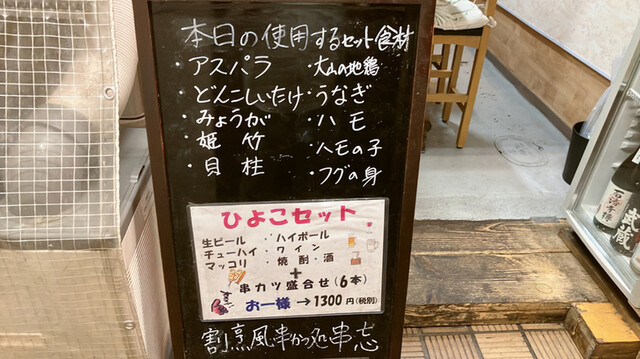 本日の使用するセット食材
・アスパラ
・どんこしいたけ
・みょうが
・姫竹
・貝柱
・大山の地鶏
・うなぎ
・ハモ
・ハモの子
・フグの身
ひよこセット
生ビール・ハイボール
チューハイ・ワイン
マッコリ・焼酎・酒
+
串カツ盛合せ(6本)
お一様→1300円(税別)
割烹風串かつ処串志
武蔵